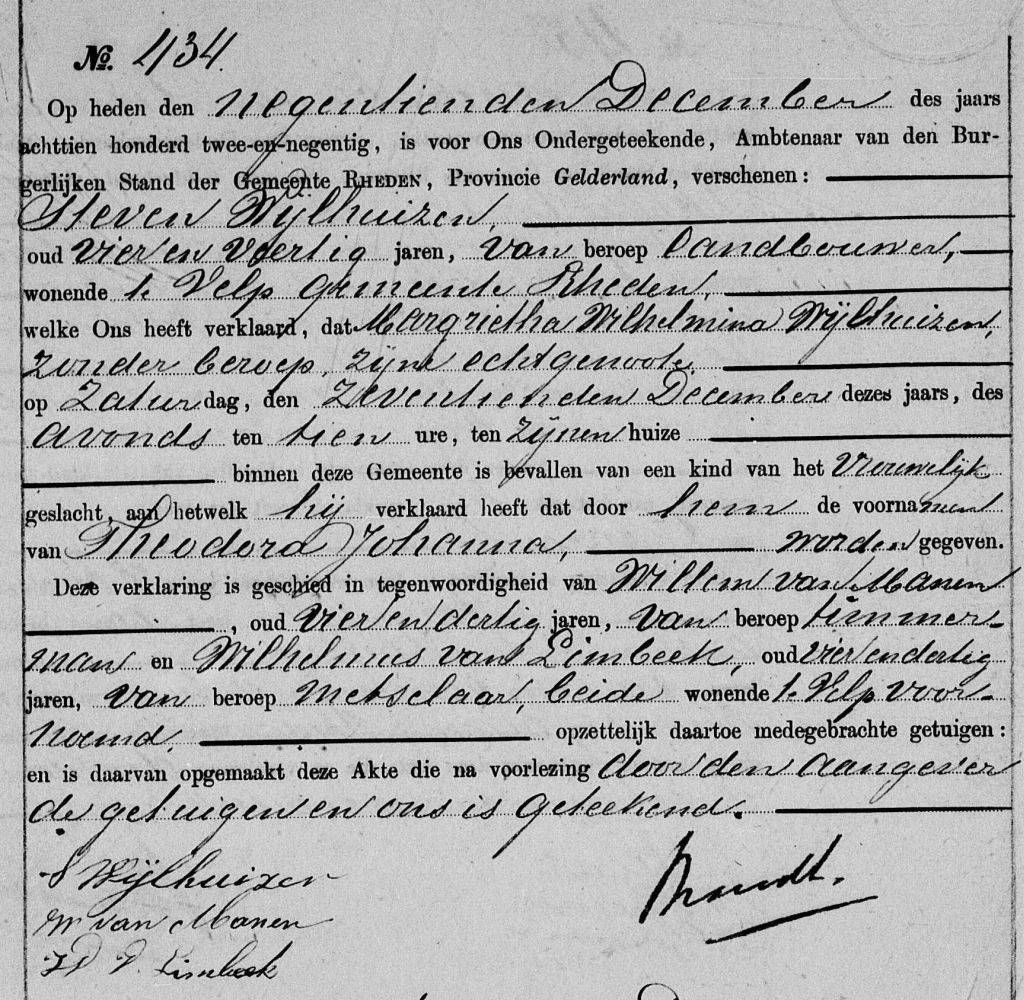 No. 434.
Op heden den negentienden December des jaars
achttien honderd twee-en-negentig, is voor Ons Ondergeteekende, Ambtenaar van den Bur-
gerlijken Stand der Gemeente RHEDEN, Provincie Gelderland, verschenen:
Steven Wijlhuizen,
oud vier en veertig jaren, van beroep landbouwer,
wonende te Velp gemeente Rheden,
welke Ons heeft verklaard, dat Margrietha Wilhelmina Wijlhuizen,
zonder beroep, zijne echtgenoote,
op Zaturdag, den zeventienden December dezes jaars, des
avonds ten tien ure, ten zijnen huize
binnen deze Gemeente is bevallen van een kind van het vrouwelijk
geslacht, aan hetwelk hij verklaard heeft dat door hem de voornamen
van Theodora Johanna, worden gegeven.
Deze verklaring is geschied in tegenwoordigheid van Willem van Manen
, oud vier en dertig jaren, van beroep timmer-
man en Wilhelmus van Limbeek, oud vier en dertig
jaren, van beroep metselaar, beide wonende te Velp voor-
noemd, opzettelijk daartoe medegebrachte getuigen:
en is daarvan opgemaakt deze Akte die na voorlezing door den aangever
de getuigen en ons is geteekend.
S Wijlhuizen
Brandt.
W van Manen
W v. Limbeek